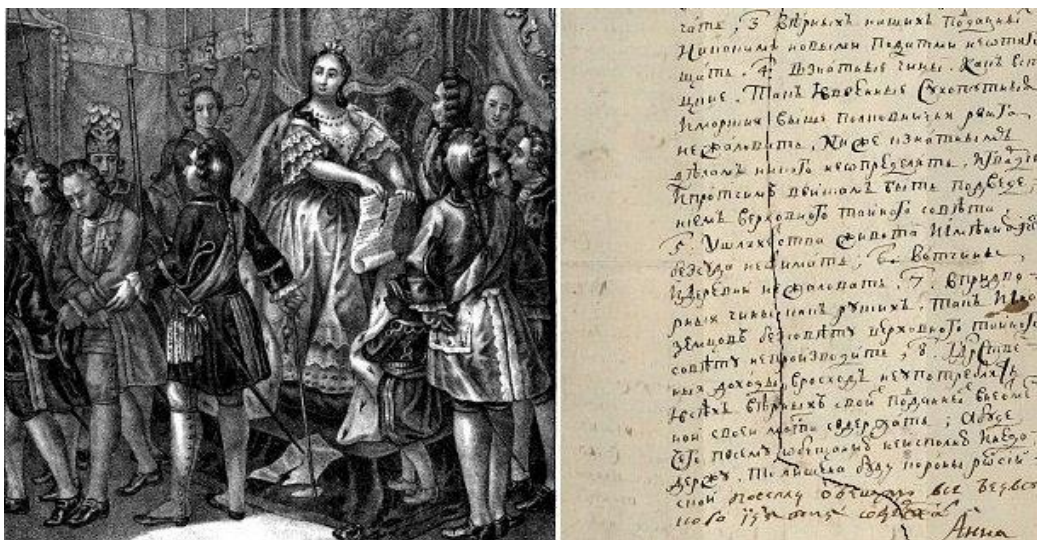 чать, 3 Вѣрныхъ нашихъ подданны
Никакими новыми податми неотяго
щать. 4. Взнатные чины. какъ вст
цкие. такъ ивоенные сухопутныя
иморския выше полковничья ранга
нежаловать. Ниже кзнатнымъ
дѣламъ никого неопределять. игварди
ипротчимъ полкамъ быть подведе,
ниемъ верховного тайного совѣта
5. Ушляхетства живота иимѣния
безсуда неотимать, 6. вотчины,
идеревни нежаловать. 7. впридво
рныя чины какъ руских. такъ ино
земцовъ безсовѣту верховного тайного
совѣту непроизводить, 8. гдрстве
ныя доходы врасходъ неупотреблять
ивсѣхъ вѣрныхъ своих подданны внеотме
ной своей милости содержать; Абуде
чего посему обещанию неисполню инедо
держу. То лишена буду короны россий
ской посему обещаю все безвся
кого содержать
Анна